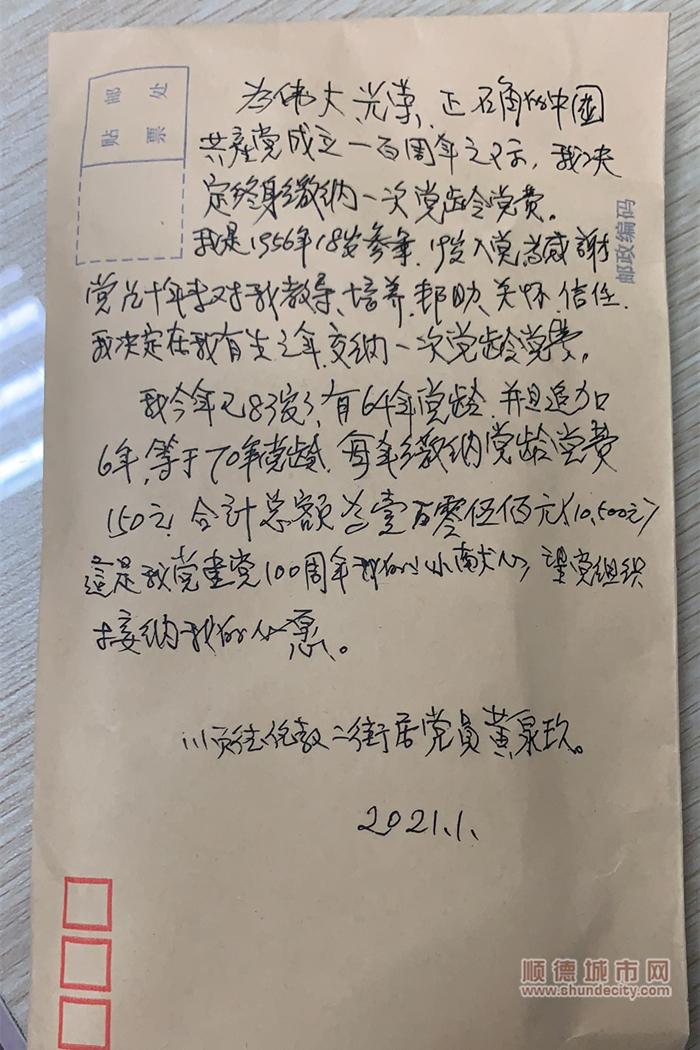 贴 邮
票 处
邮政编码
为伟大、光荣、正确的中国
共產党成立一百周年之际，我决
定终身缴纳一次党龄党费。
我是1956年18岁参军，19岁入党為感謝
党几十年来对我教导、培养、邦助、关怀、信任.
我决定在我有生之年交纳一次党龄党费。
我今年已83岁，有64年党龄，并且追加
6年，等于70年党龄，每年缴纳党龄党费
150元，合计总额为壹万零伍佰元(10,500元)
這是我党建党100周年我的小小献心，望党组织
接纳我的心愿。
顺德伦教二街居党员黄泉玖。
2021.1.
顺德城市网
www.shundecity.com